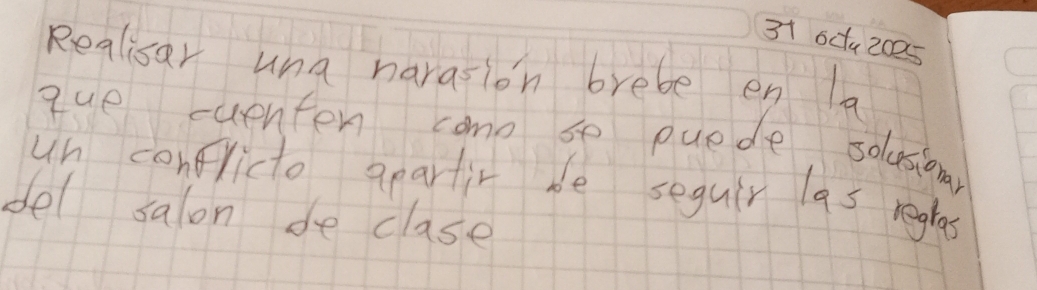 31 octu 2025
Realisar una narasión brebe en la
que cuenten como se puede solusionar
un conflicto apartir de seguir las reglas
del salon de clase